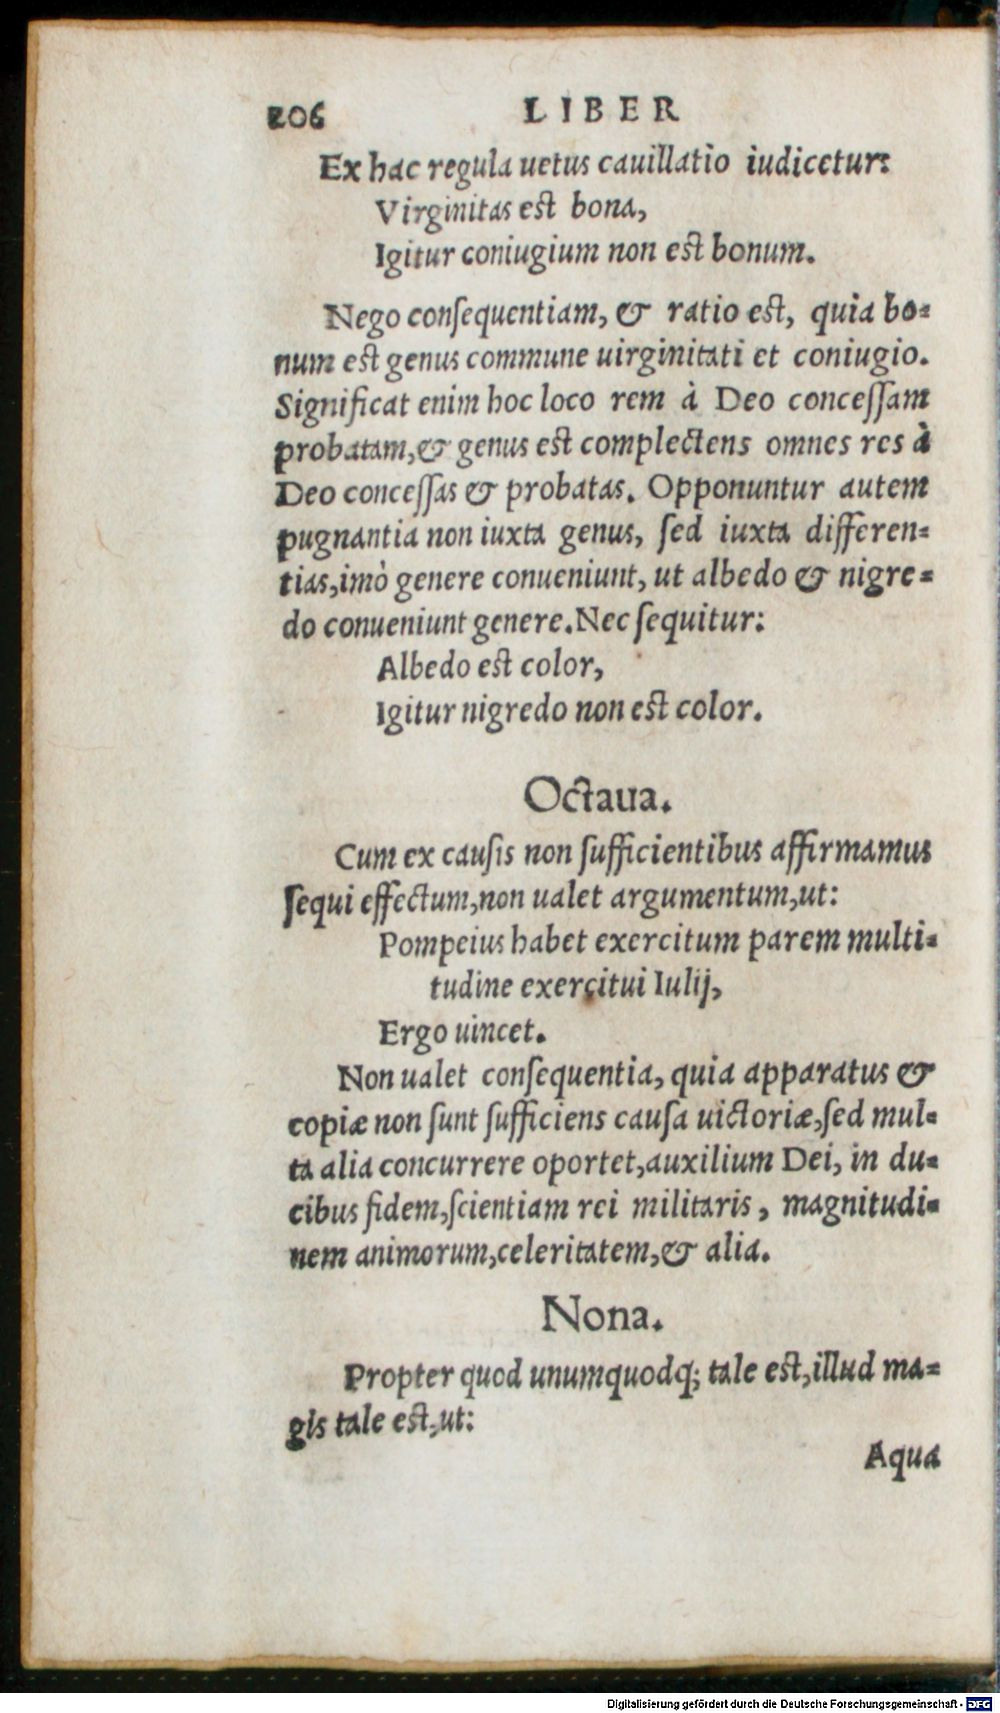 206 LIBER
Ex hac regula uetus cauillatio iudicetur:
Virginitas est bona,
Igitur coniugium non est bonum.
Nego conſequentiam, & ratio est, quia bo⸗
num est genus commune uirginitati et coniugio.
Significat enim hoc loco rem à Deo conceſſam
probatam,& genus est complectens omnes res à
Deo conceſſas & probatas. Opponuntur autem
pugnantia non iuxta genus, ſed iuxta differen⸗
tias,imò genere conueniunt, ut albedo & nigre⸗
do conueniunt genere.Nec ſequitur:
Albedo est color,
Igitur nigredo non est color.
Octaua.
Cum ex cauſis non ſufficientibus affirmamus
ſequi effectum,non ualet argumentum,ut:
Pompeius habet exercitum parem multi⸗
tudine exercitui Iulij,
Ergo uincet.
Non ualet conſequentia, quia apparatus &
copiæ non ſunt ſufficiens cauſa uictoriæ,ſed mul⸗
ta alia concurrere oportet,auxilium Dei, in du⸗
cibus fidem,ſcientiam rei militaris, magnitudi⸗
nem animorum,celeritatem,& alia.
Nona.
Propter quod unumquodq; tale est,illud ma⸗
gis tale est,ut:
Aqua
Digitalisierung gefördert durch die Deutsche Forschungsgemeinschaft - DFG